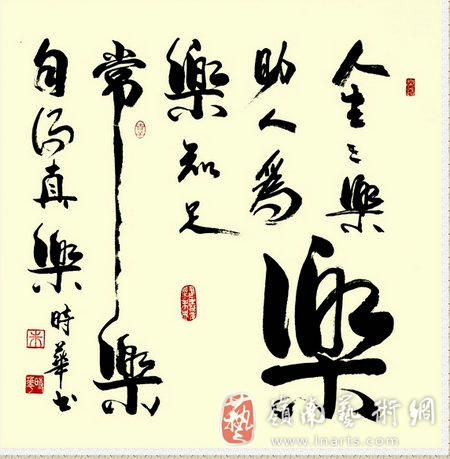 人生三樂
樂
助人爲
樂知足
常樂
自得真樂
時華書
藝
嶺南藝術網
www.lnarts.com